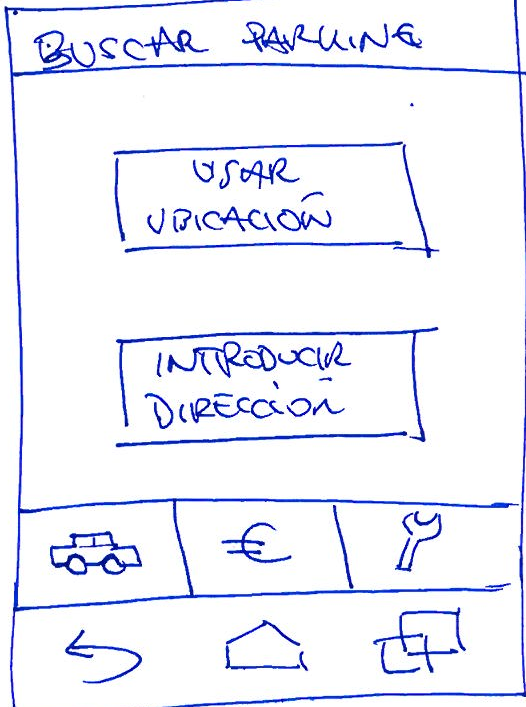 BUSCAR PARKING
USAR
UBICACIÓN
INTRODUCIR
DIRECCIÓN
€